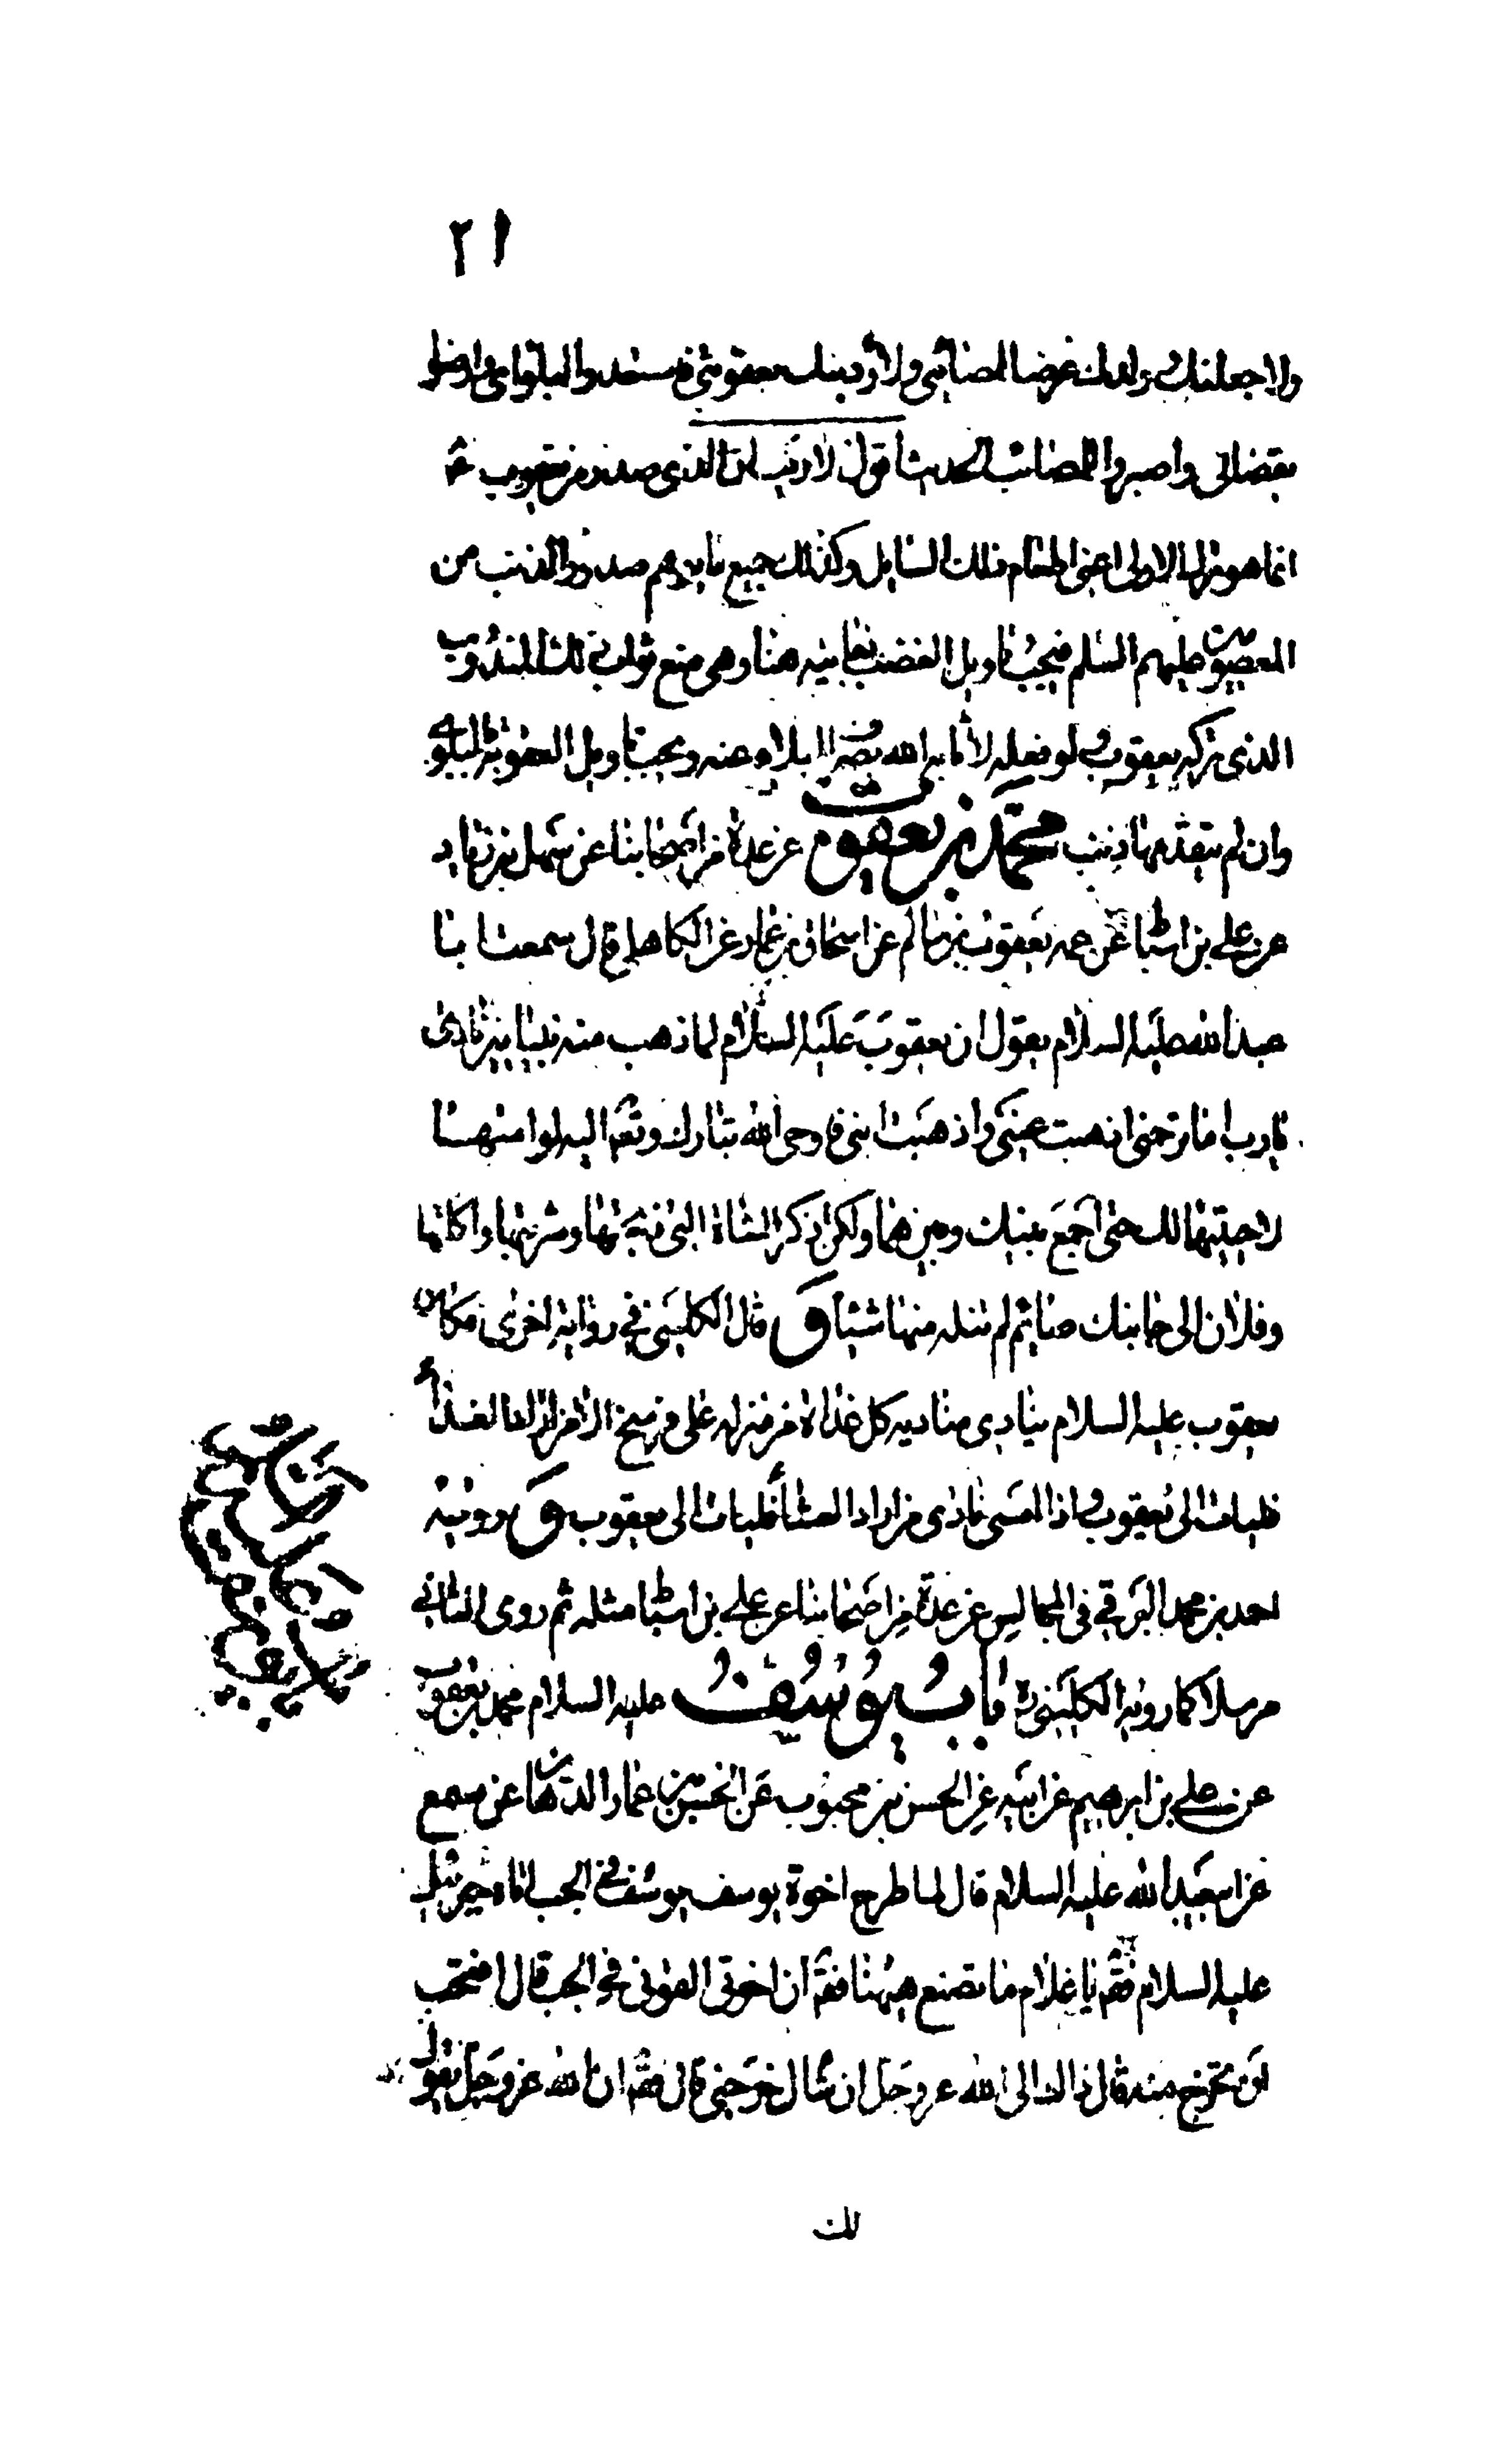 ٢١
ولاجعلنك وولدك غرضا لمصائبي ولاؤدبنك بعقوبتي فاستعدوا لبلواى وارضوا
بقضائى واصبروا للمصائب الحديث اقول لاريب ان الذى صدر من يعقوب ع
انما هو ترك الاولى اعنى اطعام ذلك السايل وكذلك جميع ما يوهم صدور الذنب من
المعصومين عليهم السلم فيجب تاويل الغضب بما بينه هنا وهى منع ثواب ذلك المندوب
الذى تركه يعقوب ولو فعله لأثابه الله بصرف البلاء عنه ويجب تاويل العقوبة بالبلوى
وان لم يتقدمها ذنب محمد بن يعقوب عن عدة من اصحابنا عن سهل بن زياد
عن على بن اسباط عن عمه يعقوب بن سالم عن اسحاق بن عمار عن الكاهلى قال سمعت ابا
عبد الله عليه السلام يقول ان يعقوب عليه السلام لما ذهب منه بنيامين نادى
يا رب اما ترحمنى اذهبت عينى واذهبت ابنى فاوحى الله تبارك وتعالى اليه لو امتهما
لاحييتهما لك حتى اجمع بينك وبينهما ولكن اذكر الشاة التى ذبحتها وشويتها واكلتها
وفلان الى جانبك صائم لم تنله منها شيئا و قال الكلينى فى رواية اخرى فكان
يعقوب عليه السلام ينادى مناديه كل غداة من منزله على فرسخ الا من اراد الغداء
فليات الى يعقوب واذا امسى نادى من اراد العشاء فليات الى يعقوب و روينه
احمد بن محمد البرقى فى المجالس عن عدة من اصحابنا عن على بن اسباط مثله ثم روى الثانى
مرسلا كما رواه الكلينى ره باب يوسف عليه السلام محمد بن يعقوب
عن على بن ابرهيم عن ابيه عن الحسن بن محبوب عن الحسن بن عمار الدهان عن مسمع
عن ابى عبد الله عليه السلام قال لما طرح اخوة يوسف يوسف فى الجب اتاه جبرئيل
عليه السلام فقال يا غلام ما تصنع هيهنا فقال ان اخوتى القونى فى الجب قال افتحب
ان تخرج منه قال ذاك الى الله عز وجل ان شاء اخرجنى قال فقال ان الله عز وجل يقول
لك